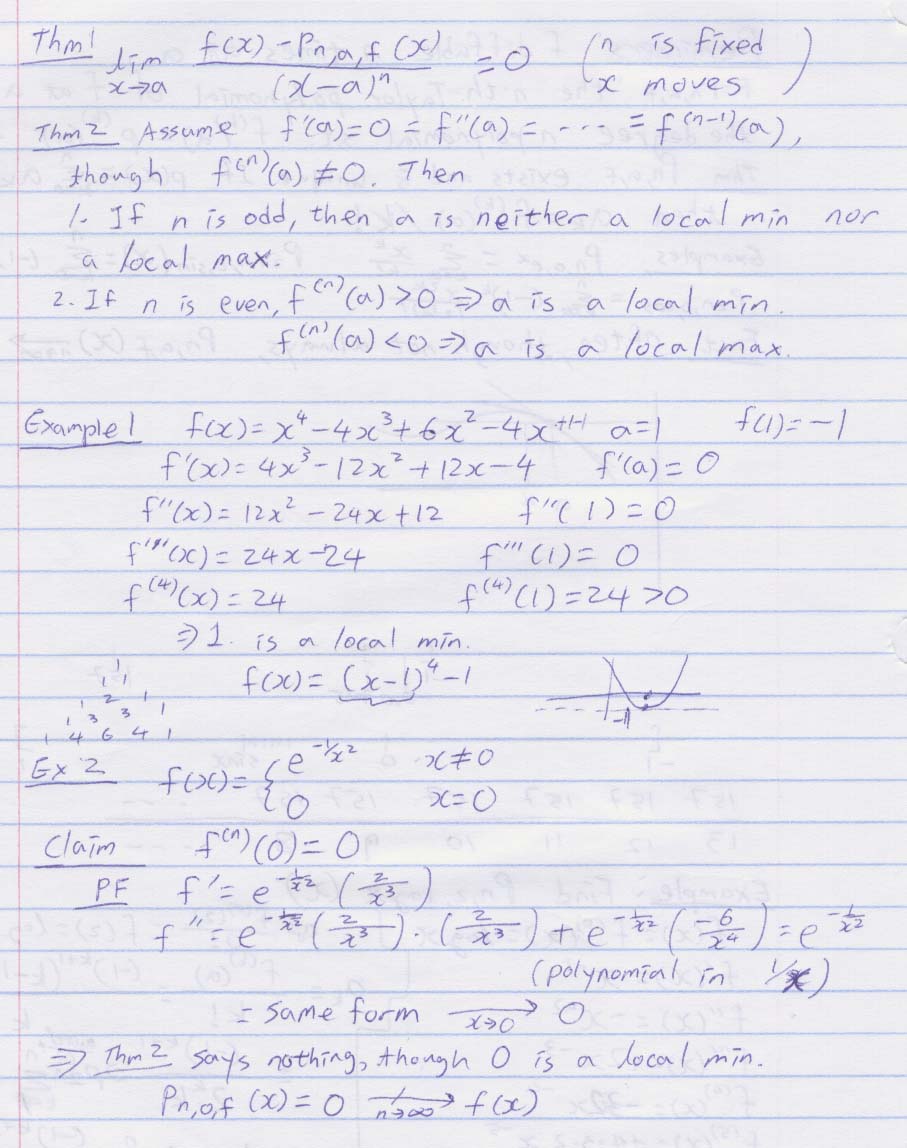 Thm 1 lim x→a (f(x) - Pn,a,f (x))/(x-a)^n = 0 (n is fixed x moves)
Thm 2 Assume f'(a) = 0 = f''(a) = ---- = f^(n-1)(a),
though f^(n)(a) ≠ 0. Then
1. If n is odd, then a is neither a local min nor
a local max.
2. If n is even, f^(n)(a) > 0 ⇒ a is a local min.
f^(n)(a) < 0 ⇒ a is a local max.
Example 1 f(x) = x^4 - 4x^3 + 6x^2 - 4x +1-1 a=1 f(1) = -1
f'(x) = 4x^3 - 12x^2 + 12x - 4 f'(a) = 0
f''(x) = 12x^2 - 24x + 12 f''(1) = 0
f'''(x) = 24x - 24 f'''(1) = 0
f^(4)(x) = 24 f^(4)(1) = 24 > 0
⇒ 1 is a local min.
f(x) = (x-1)^4 - 1
1
1 1
1 2 1
1 3 3 1
1 4 6 4 1
-1
Ex 2 f(x) = { e^(-1/x^2) x≠0
0 x=0
Claim f^(n)(0) = 0
PF f' = e^(-1/x^2) (2/x^3)
f'' = e^(-1/x^2) (2/x^3) · (2/x^3) + e^(-1/x^2) (-6/x^4) = e^(-1/x^2)
(polynomial in 1/x)
= same form →(x→0) 0
⇒ Thm 2 says nothing, though 0 is a local min.
Pn,0,f (x) = 0 ↛(n→∞) f(x)